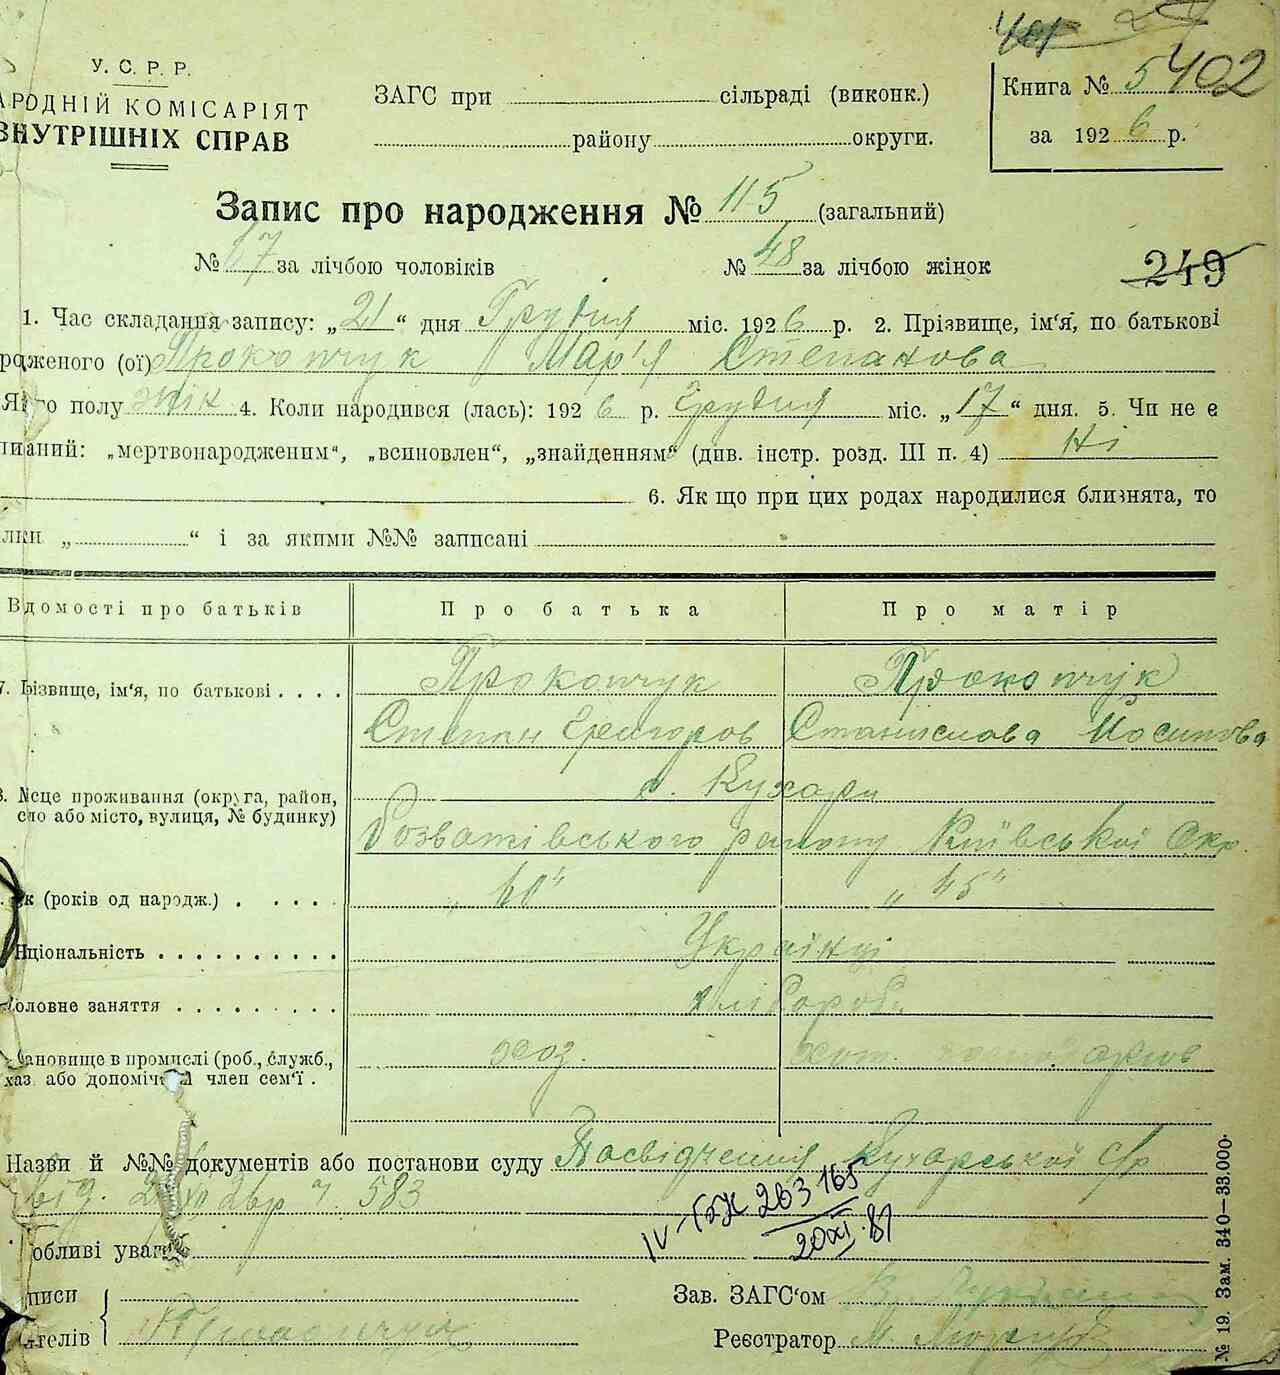 У. С. Р. Р.
АРОДНІЙ КОМІСАРІЯТ
ВНУТРІШНІХ СПРАВ
ЗАГС при сільраді (виконк.)
району округи.
Книга № 5 402
за 1926 р.
Запис про народження № 115 (загальний)
№ 67 за лічбою чоловіків № 48 за лічбою жінок
249
1. Час складання запису: „21“ дня Грудня міс. 1926 р. 2. Прізвище, ім'я, по батькові
родженого (ої) Прокопчук Мар'я Степанова
Якого полу жін 4. Коли народився (лась): 1926 р. Грудня міс. „17“ дня. 5. Чи не є
писаний: „мертвонародженим“, „всиновлен“, „знайденням“ (див. інстр. розд. III п. 4) Ні
6. Як що при цих родах народилися близнята, то
лки „ “ і за якими №№ записані
Відомості про батьків Про батька Про матір
7. Прізвище, ім'я, по батькові Прокопчук Прокопчук
Степан Григоров Станислова Йосипова
8. Місце проживання (округа, район, село або місто, вулиця, № будинку) с. Кухари
Розважівського району Київської Окр.
к (років од народж.) „ “ „45“
Національність Українці
Головне заняття хлібороб.
Становище в промислі (роб., служб., хаз. або допомічний член сем'ї хоз.
Назви й №№ документів або постанови суду Посвідчення Кухарської с/р
від. 583
IV-БК 263165
20XI.81
обливі уваги
писи Зав. ЗАГС'ом
ителів Реєстратор М.
№ 19. Зам. 340—33.000.